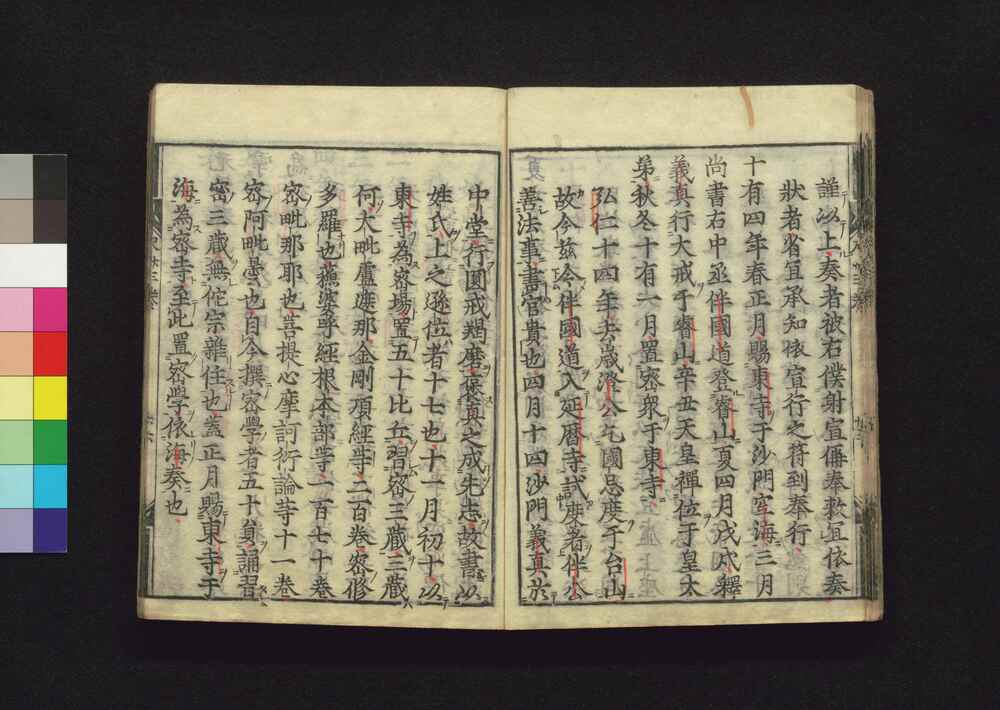 謹以上奏者被右僕射宣偁奉敕宜依奏
狀者省宜承知依宣行之符到奉行
十有四年春正月賜東寺于沙門空海三月
尚書右中丞伴國道登睿山夏四月戊戌釋
義真行大戒于睿山辛丑天皇禪位于皇太
弟秋冬十有一月置密衆于東寺
弘仁十四年去歲澄公乞國忌度于台山
故今茲令伴國道入延曆寺試度者伴公
善法事書官貴也四月十四沙門義真於
中堂行圓戒羯磨褒真之成先志故書以
姓氏上之遜位者十七也十一月初十以
東寺為密場置五十比丘習密三藏三藏
何大毗盧遮那金剛頂經等二百卷密修
多羅也蘇婆呼經根本部等一百七十卷
密毗那耶也菩提心摩訶衍論等十一卷
密阿毗曇也自今撰密學者五十員誦習
密三藏無佗宗雜住也蓋正月賜東寺于
海為密寺至此置密學依海奏也